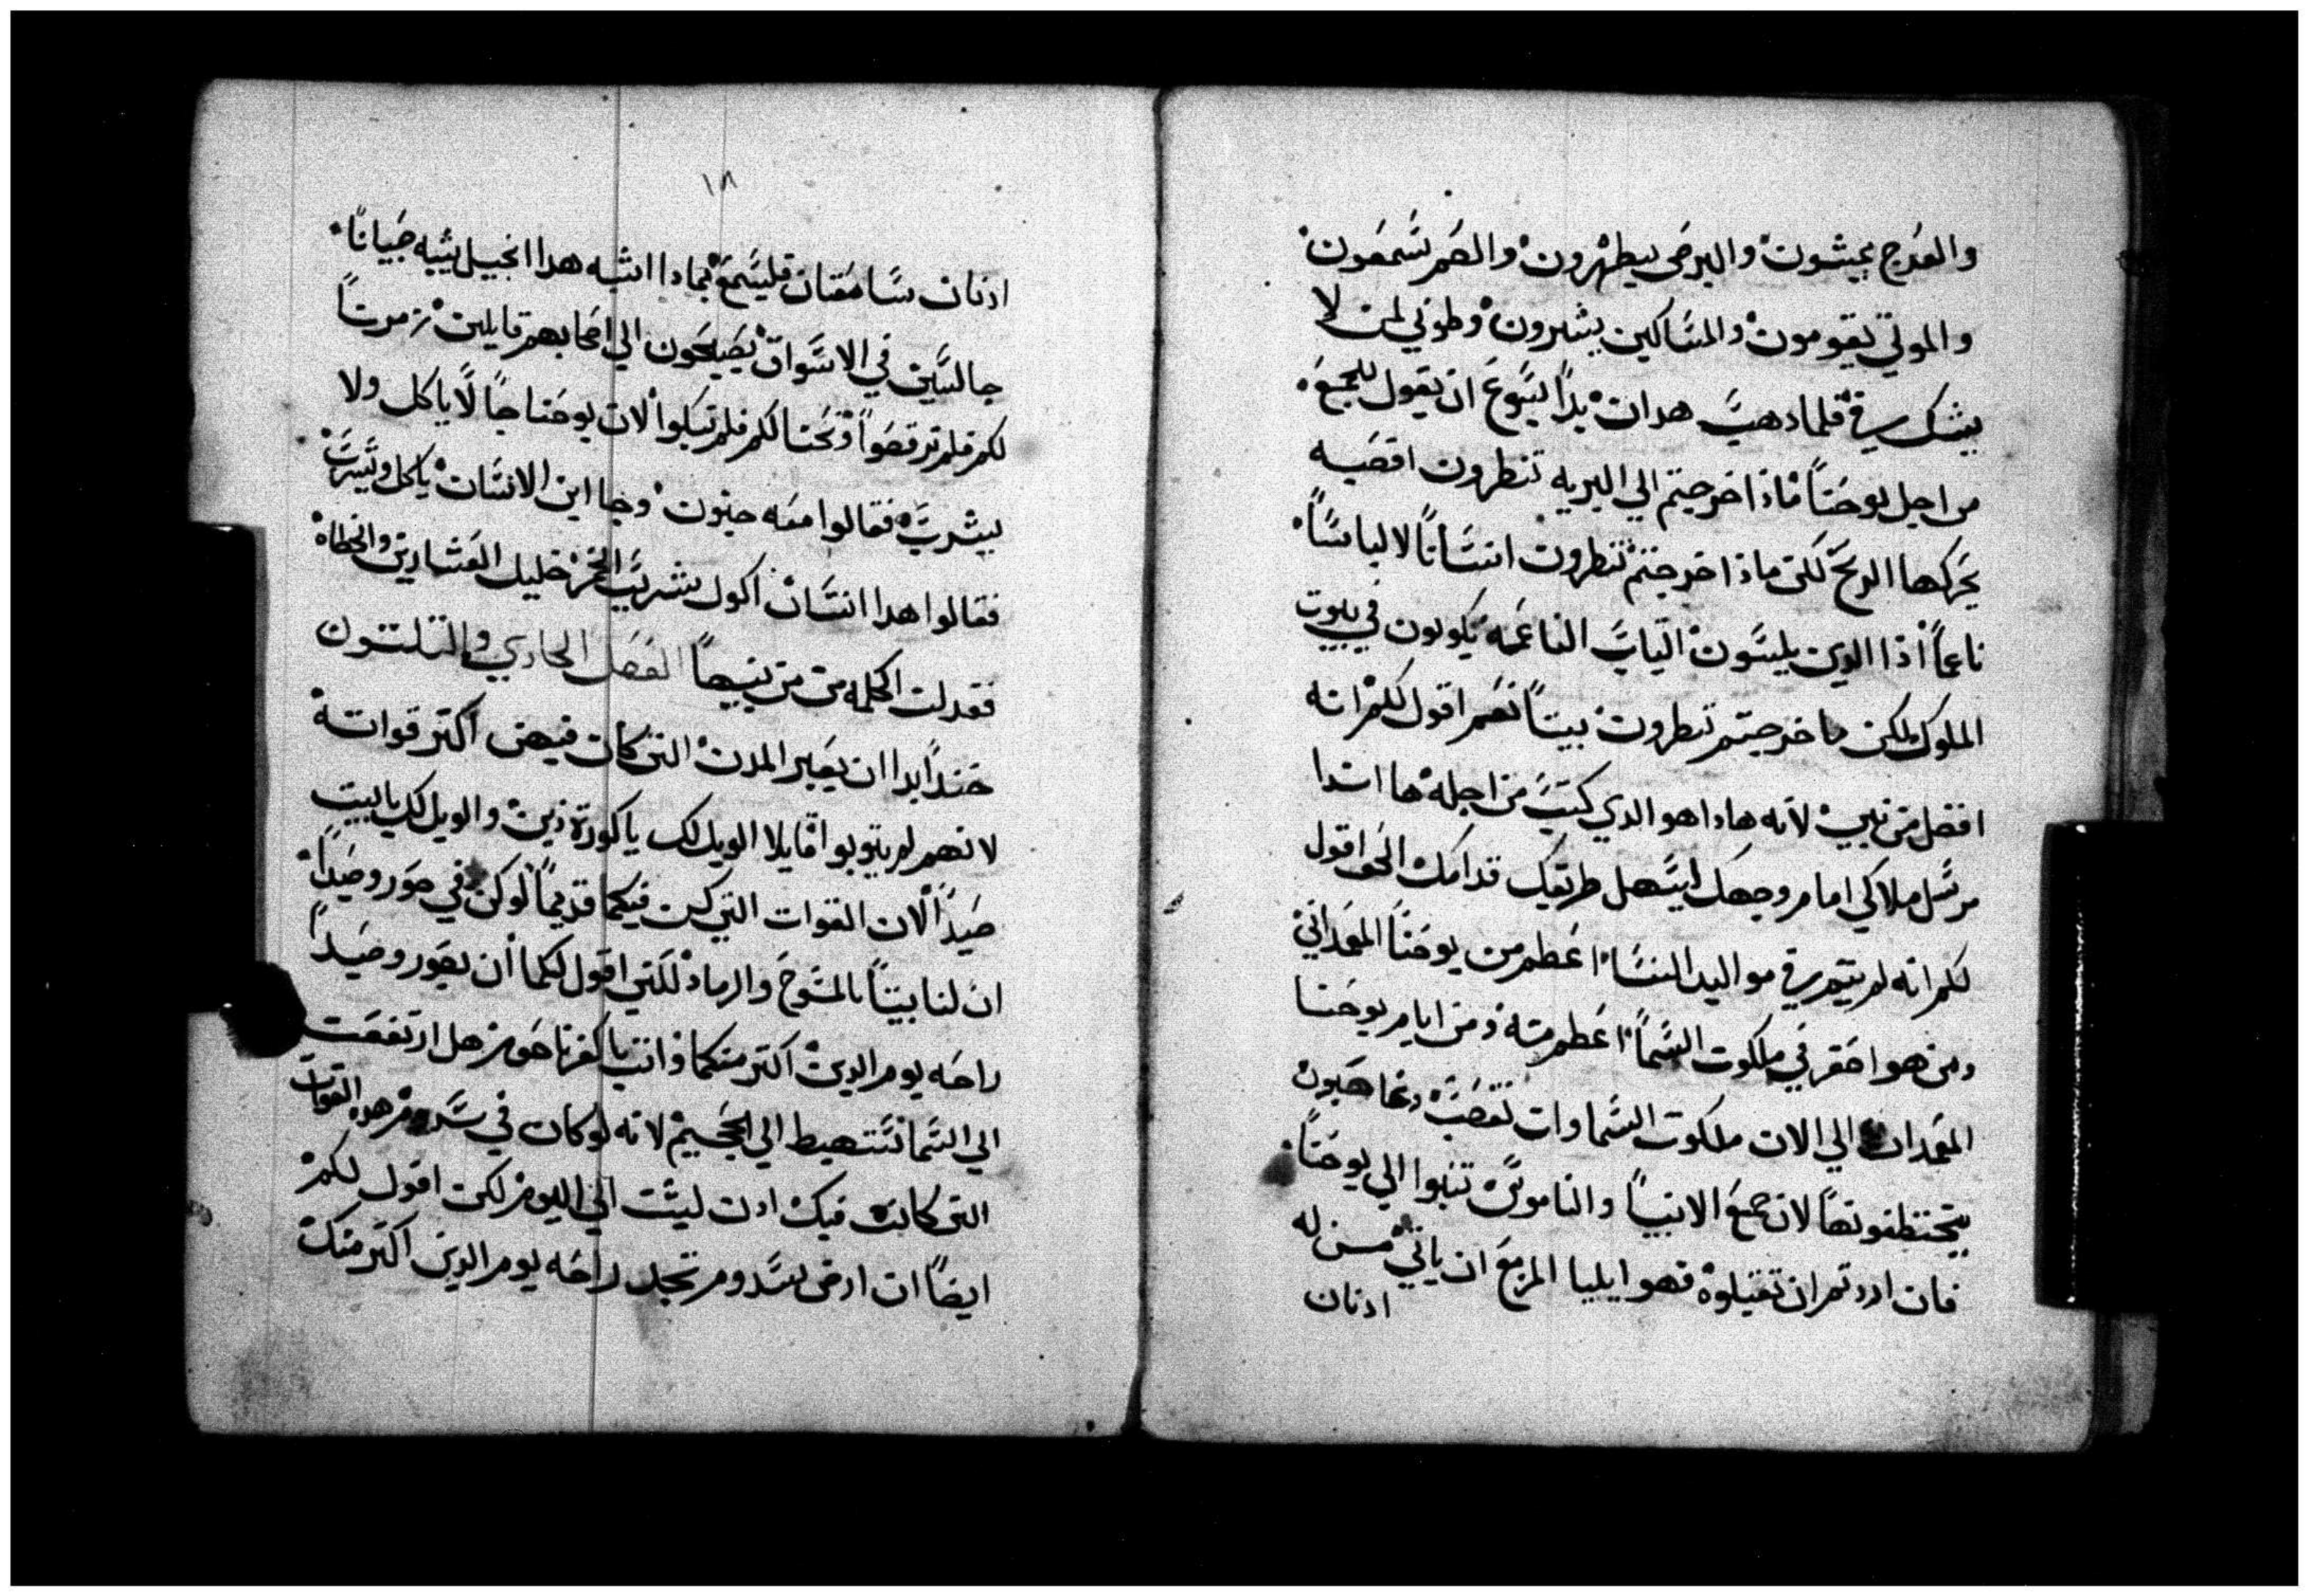 والعُرج يميشون والبرصَى يطهرون والصَم يسَمعَون
والموتي يقومون والمسَاكين يبشرون وطوبي لمن لا
يشك فيَّ فلما دهبَ هدان بدا يسَوعَ ان يقول للجمعَ
من اجل يوحَناً ماذا خرجتم الي البريه تنطرون اقصَبه
يحَركها الريحَ لكن ماذا خرجتم تنطرون انسَاناً لابسا لباسًا
ناعماً اذا الدين يلبسَون التيابَ الناعَمه يكونون في بيوت
الملوك لكن ما خرجتم تنطرون نبياً نعَم اقول لكم انه
افضل من نبي لانه هادا هو الدي كتبَ من اجله ها اندا
مرسَل ملاكي امام وجهك ليسَهل طريقك قدامك الحق اقول
لكم انه لم يقم في مواليد النسَاء اعَطم من يوحَنا المعَمداني
ومن هو احَقر في ملكوت السَماء اعَطم منه ومن ايام يوحَنا
المعَمدان الي الان ملكوت السَماوات تغصَب وغاصَبون
يختطفونهاً لان جميعَ الانبياً والناموسَ تنبوا الي يوحَناً
فان اردتم ان تقبلوه فهو ايليا المزمعَ ان ياتي من له
ادنان
١٨
ادنان سَامعَتان فليسَمعَ بماداا شبه هدا الجيل يشبه صَبياناً
جالسَين في الاسَواق يصَيحَون الي اصحَابهم قايلين زمرناً
لكم فلم ترقصَواً ونحَنا لكم فلم تبكوا لان يوحَنا جا لا ياكل ولا
يشربَ فقالوا معَه جنون وجا ابن الانسَان ياكل ويشربَ
فقالوا هدا انسَان اكول شريبَ الخمر خليل العَشارين والخطاه
فعدلت الحكمه من بنيهاً الفصَل الحادي والتلتون
حَنيداً بدا ان يعَير المدن التي كان فيهن اكتر قواته
لانهم لم يتوبوا قايلا الويل لك يا كورزين والويل لك يا بيت
صَيداً لان القوات التي كن فيكما قديماً لو كن في صَور وصَيداً
ان لنا بيتاً بالمسَوحَ والرماد لكني اقول لكما ان بصَور وصَيداً
راحَه يوم الدين اكتر منكما وانت يا كفرناحَوم هل ارتفعَت
الي السَما سَتهبط الي الجحَيم لانه لو كان في سَدوم هده القوات
التي كانت فيك ادن لبثت الي اليوم لكن اقول لكم
ايضاً ان ارض سَدوم تجد راحَه يوم الدين اكتر منك